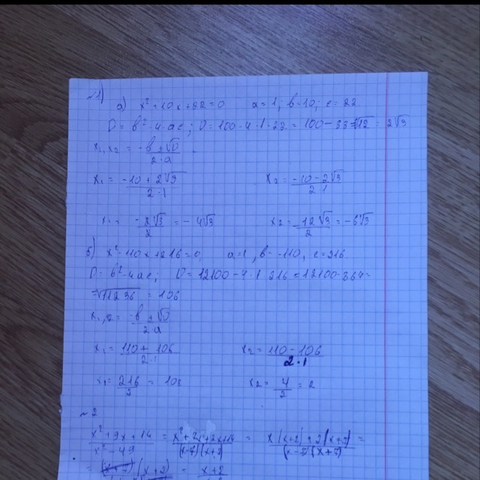 №1)
а) x² + 10x + 22 = 0 a = 1; b = 10; c = 22
D = b² - 4·ac; D = 100 - 4·1·22 = 100 - 88 = √12 2√3
x₁,x₂ = -b ± √D / 2·a
x₁ = -10 + 2√3 / 2·1 x₂ = -10 - 2√3 / 2·1
x₁ = -8√3 / 2 = -4√3 x₂ = -12√3 / 2 = -6√3
б) x² - 110x + 216 = 0 a = 1, b = -110, c = 216
D = b² - 4ac; D = 12100 - 4·1·216 = 12100 - 864 =
= √11236 = 106
x₁,₂ = -b ± √D / 2·a
x₁ = 110 + 106 / 2·1 x₂ = 110 - 106 / 2·1
x₁ = 216 / 2 = 108 x₂ = 4 / 2 = 2
№2
x² + 9x + 14 / x² - 49 = = x(x+2) + 7(x+2) / (x-7)(x+7) =
(x+2) = x+2